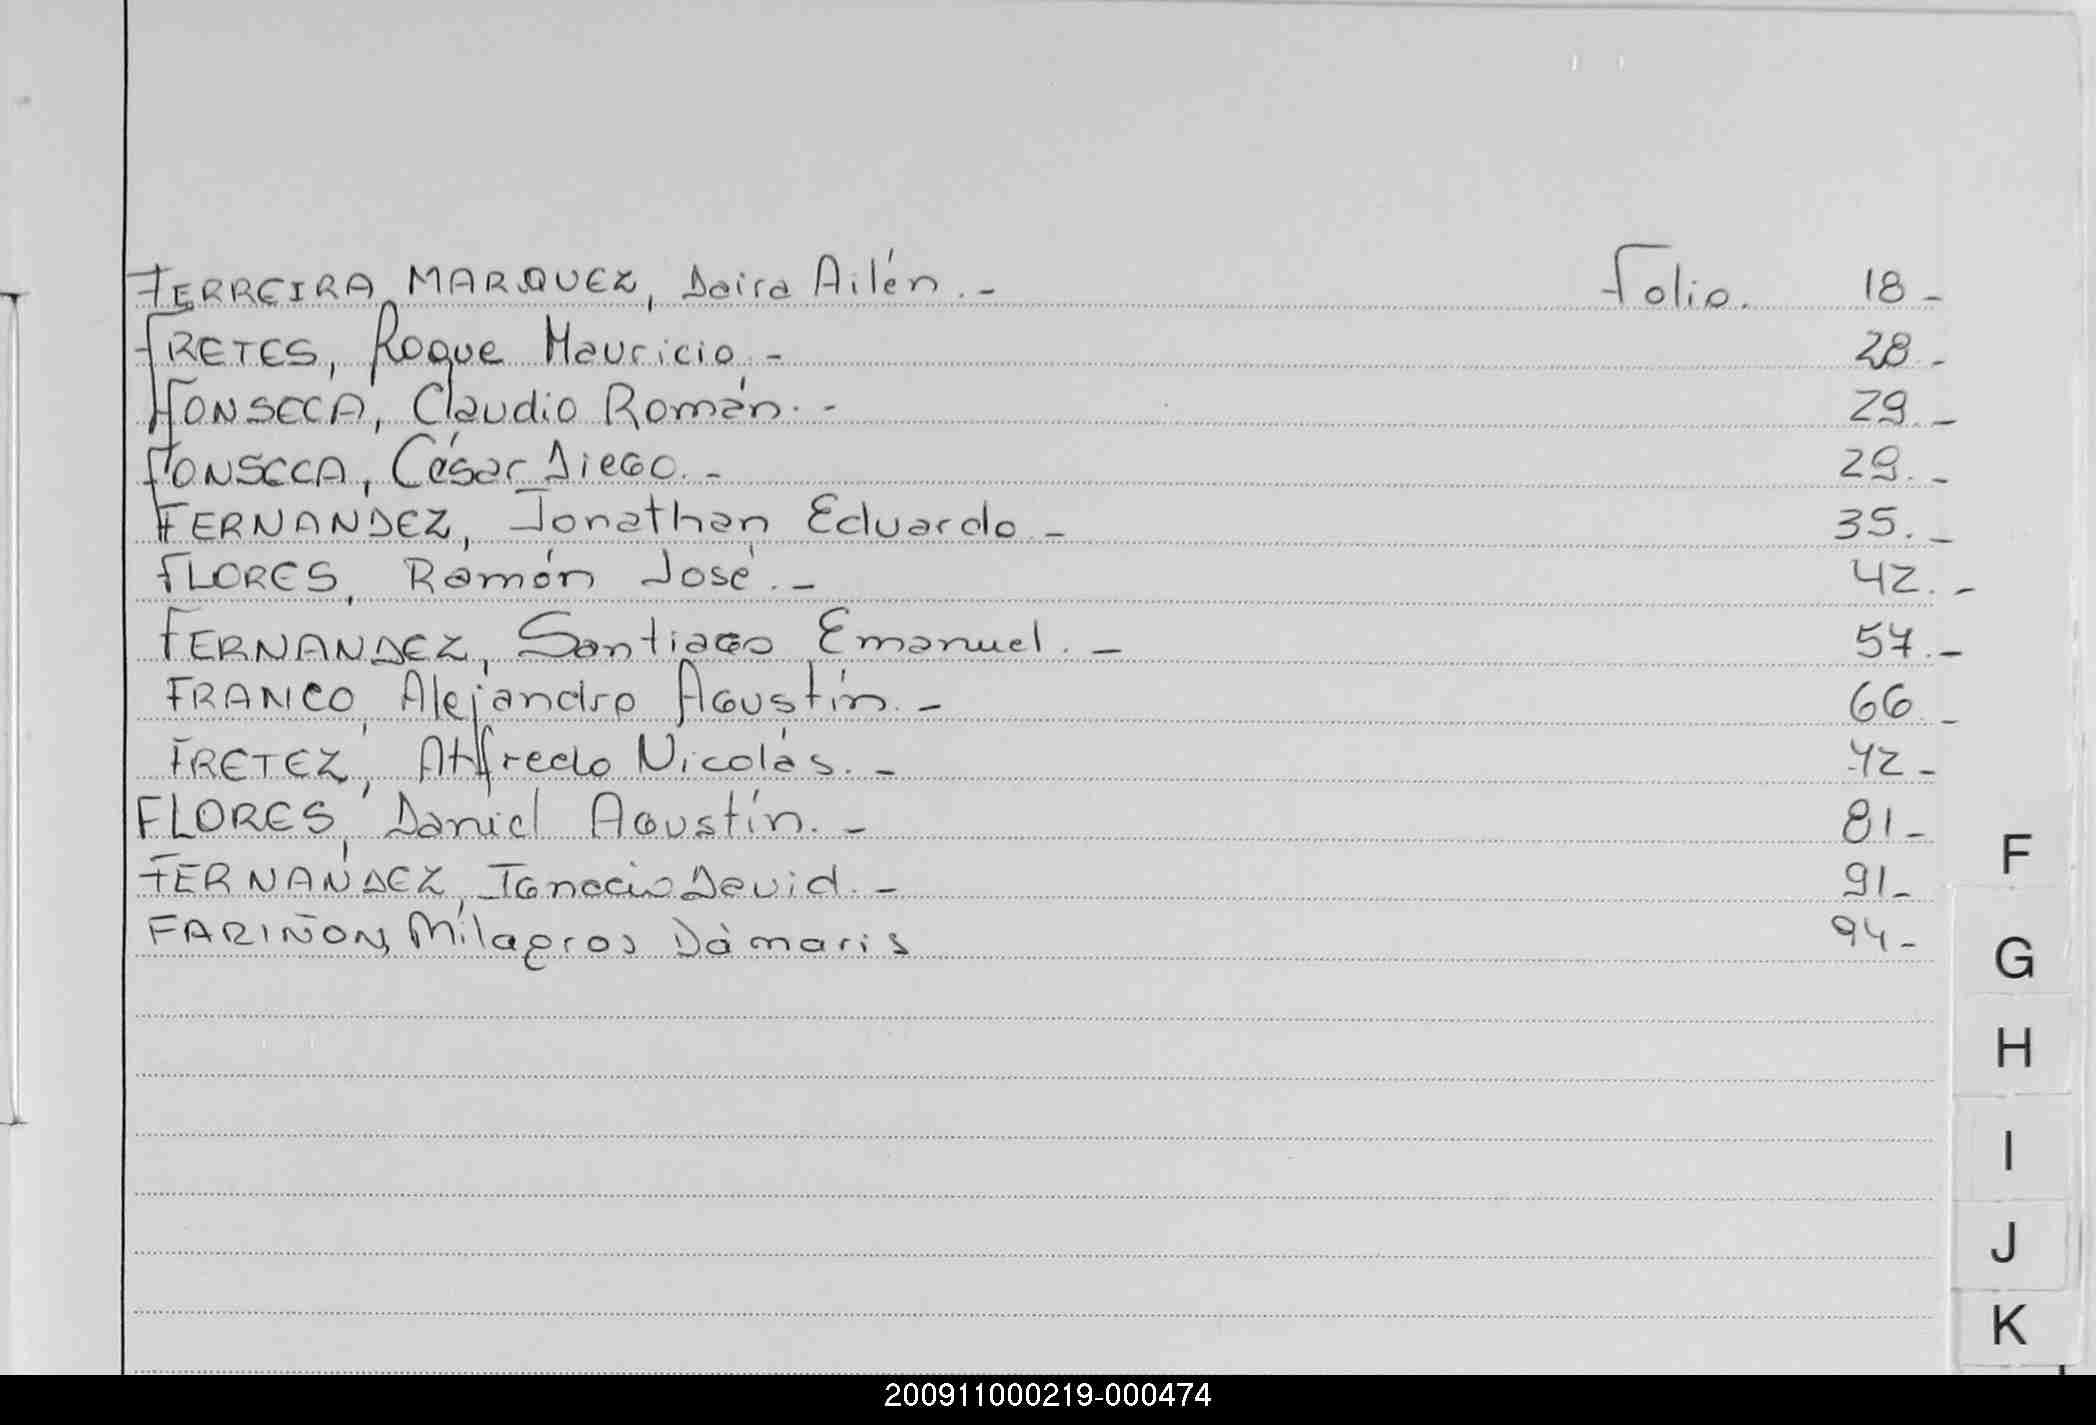 FERREIRA MARQUEZ, Daira Ailén.- Folio. 18-
FRETES, Roque Mauricio.- 28.-
FONSECA, Claudio Román.- 29.-
FONSECA, César Diego.- 29.-
FERNANDEZ, Jonathan Eduardo.- 35.-
FLORES, Ramón José.- 42.-
FERNANDEZ, Santiago Emanuel.- 57.-
FRANCO, Alejandro Agustín.- 66.-
FRETEZ, Nicolás.- 72-
FLORES, Daniel Agustín.- 81-
FERNANDEZ, Ignacio David.- 91-
FARIÑON, Milagros Dámaris 94-
F
G
H
I
J
K
200911000219-000474